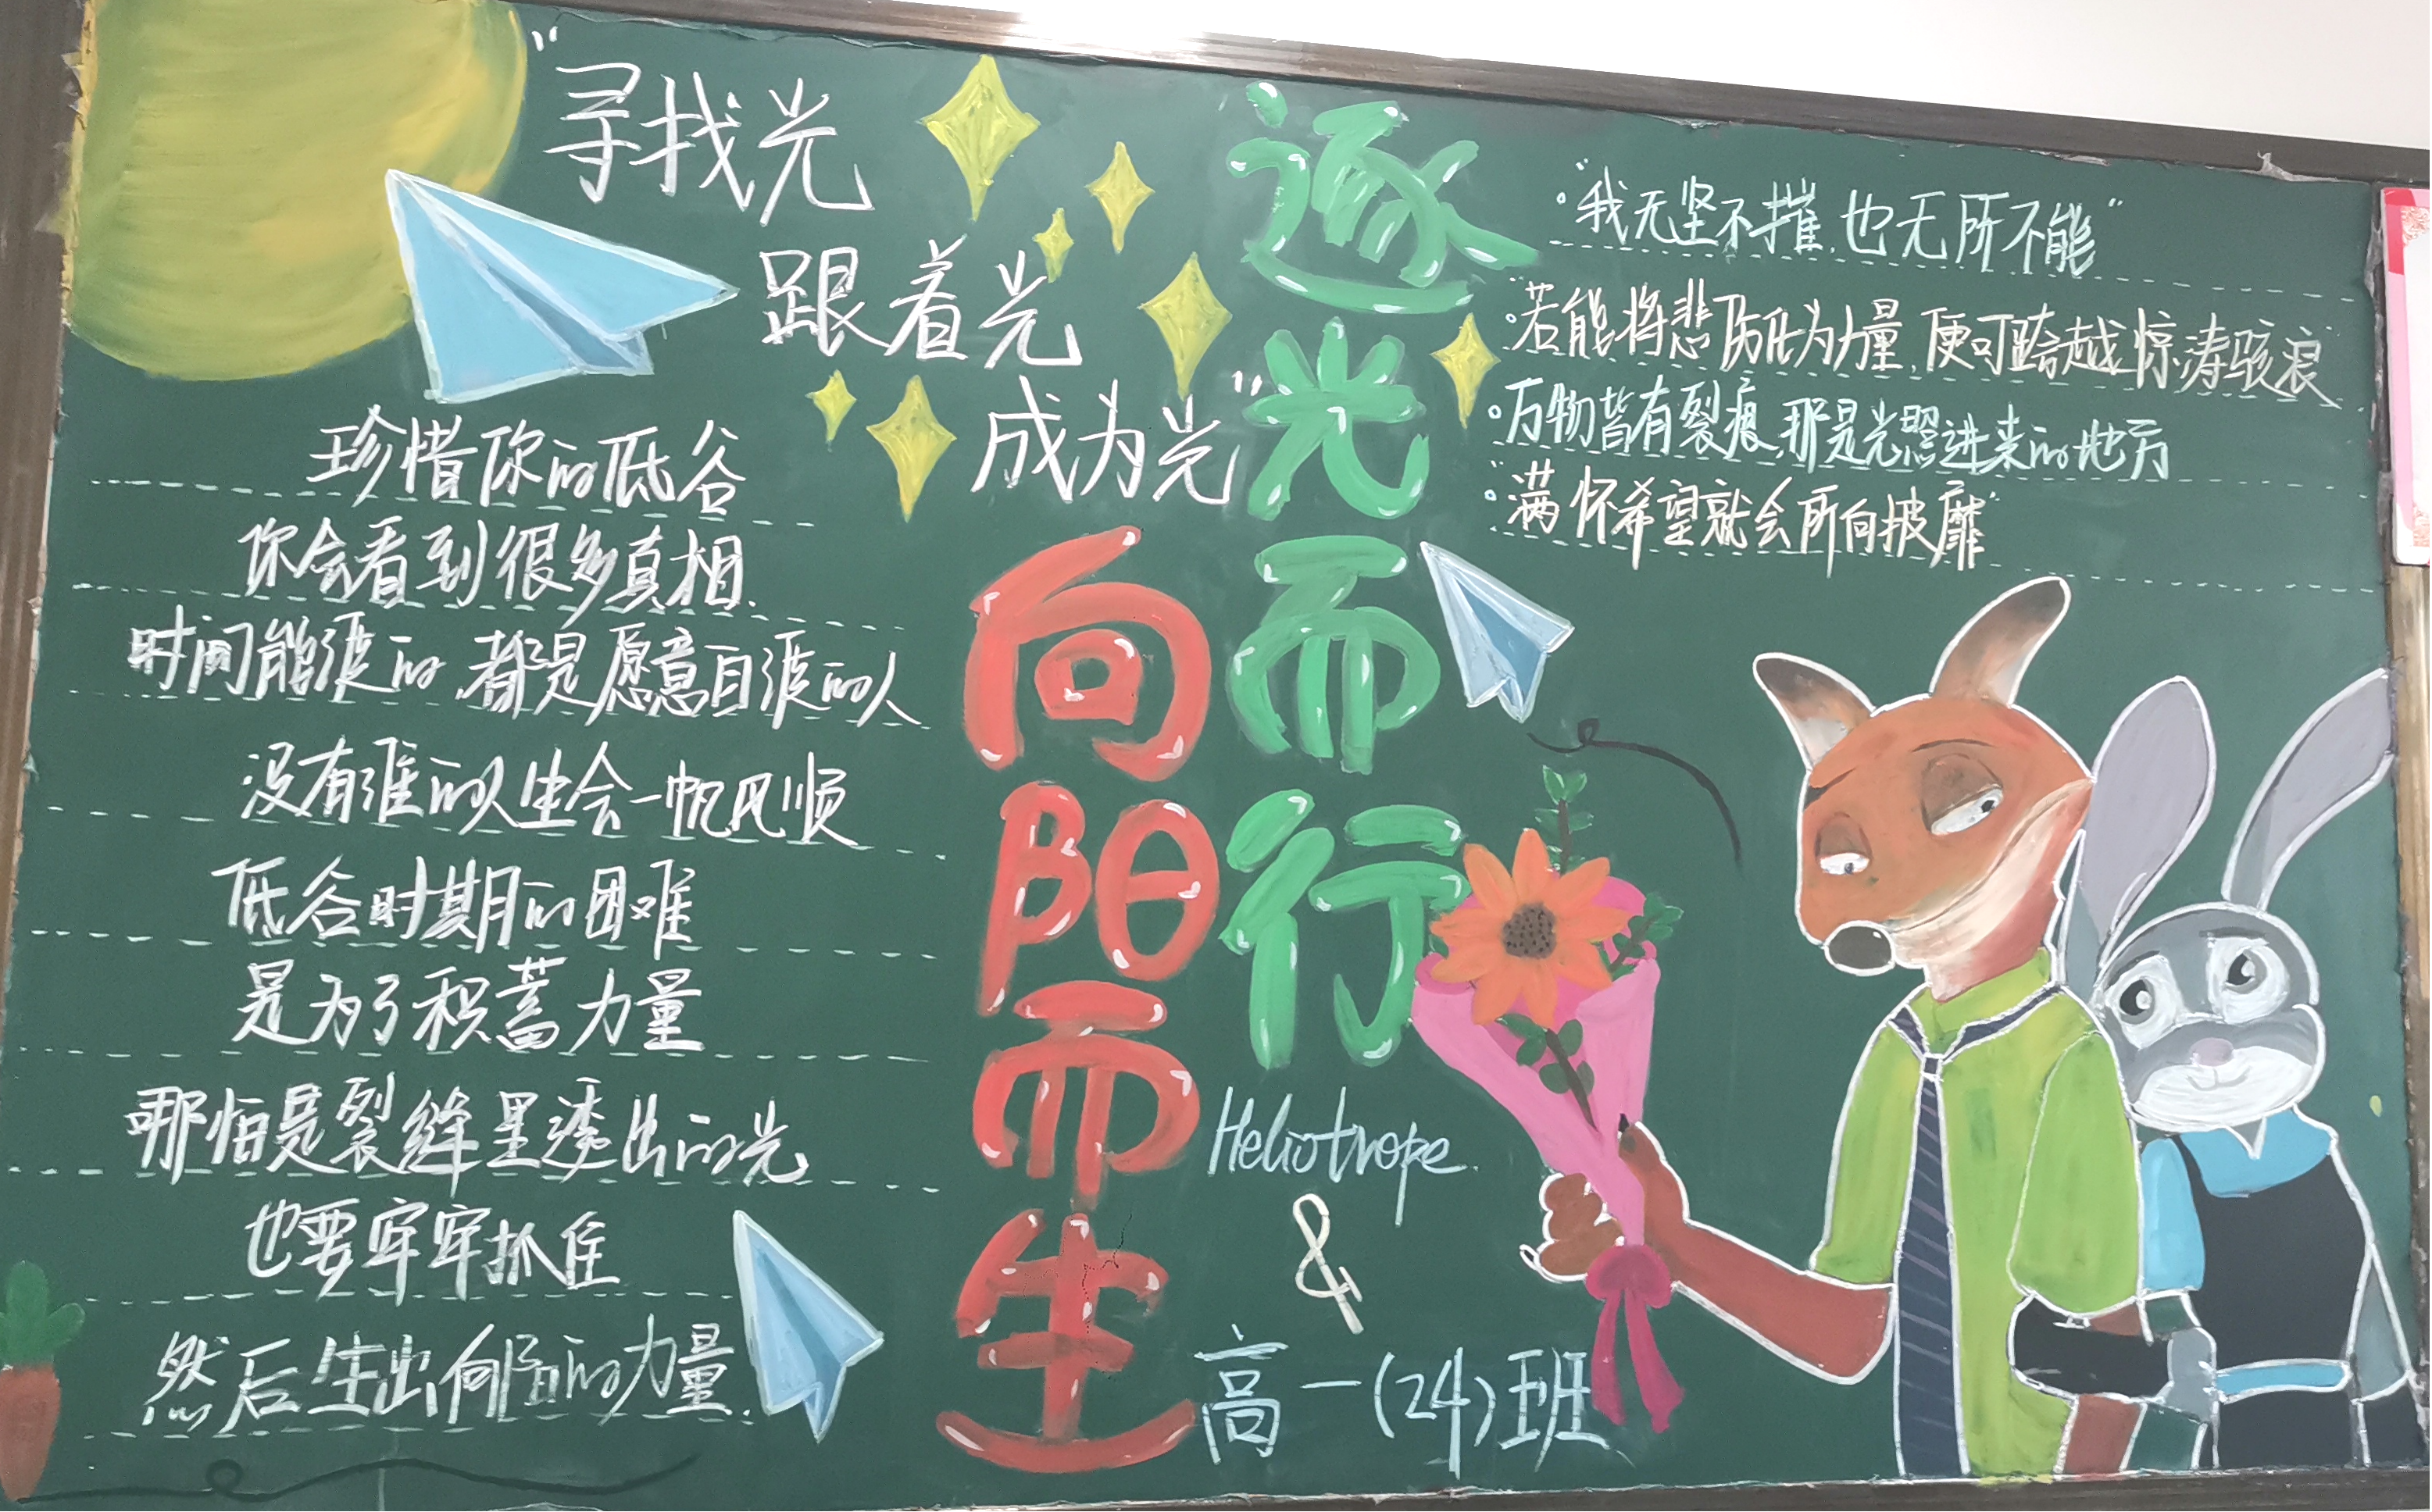 “寻找光
跟着光
成为光”
逐光而行
向阳而生
珍惜你的低谷
你会看到很多真相.
时间能渡的,都是愿意自渡的人
没有谁的人生会一帆风顺
低谷时期的困难
是为了积蓄力量
哪怕是裂缝里透出的光
也要牢牢抓住
然后生出向阳的力量.
·“我无坚不摧,也无所不能”
·若能将悲伤化为力量,便可跨越惊涛骇浪
·万物皆有裂痕,那是光照进来的地方
·“满怀希望就会所向披靡”
Heliotrope.
&
高一(24)班